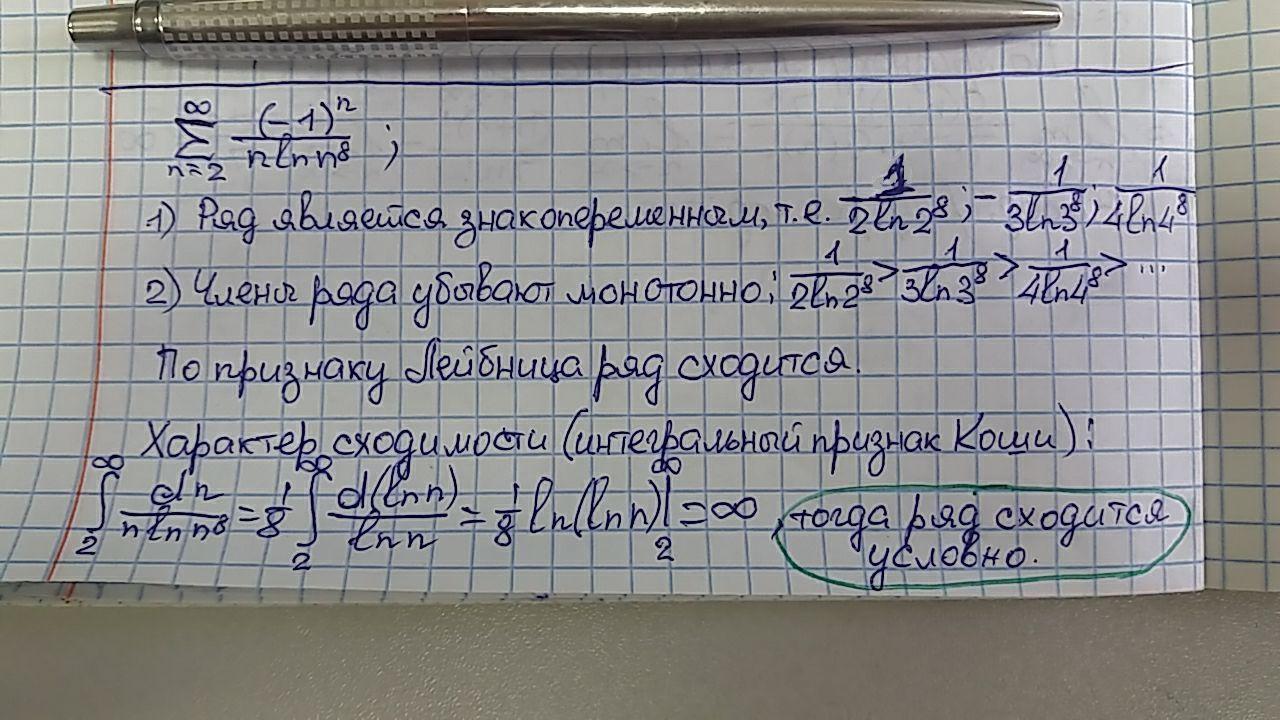 ∑_{n=2}^{∞} (-1)^n / (n ln n^8) ;
1) Ряд является знакопеременным, т.е. 1/(2ln2^8) ; - 1/(3ln3^8) ; 1/(4ln4^8)
2) Члены ряда убывают монотонно: 1/(2ln2^8) > 1/(3ln3^8) > 1/(4ln4^8) > ...
По признаку Лейбница ряд сходится.
Характер сходимости (интегральный признак Коши):
∫_2^∞ dn/(n ln n^8) = 1/8 ∫_2^∞ d(ln n)/(ln n) = 1/8 ln(ln n)|_2^∞ = ∞ , тогда ряд сходится
условно.